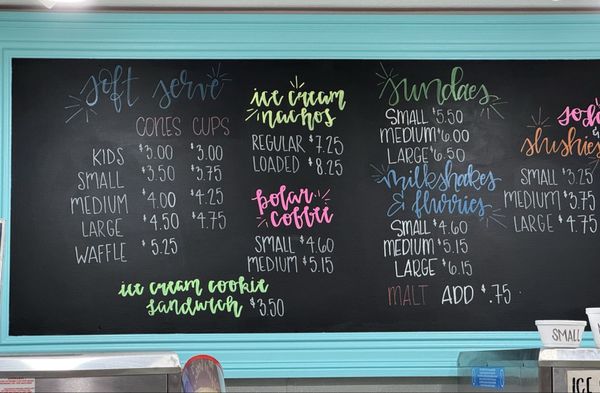 soft serve
CONES CUPS
KIDS $3.00 $3.00
SMALL $3.50 $3.75
MEDIUM $4.00 $4.25
LARGE $4.50 $4.75
WAFFLE $5.25
ice cream cookie
sandwich $3.50
ice cream
nachos
REGULAR $7.25
LOADED $8.25
polar
coffee
SMALL $4.60
MEDIUM $5.15
sundaes
SMALL $5.50
MEDIUM $6.00
LARGE $6.50
milkshakes
& flurries
SMALL $4.60
MEDIUM $5.15
LARGE $6.15
MALT ADD $.75
&
slushies
SMALL $3.25
MEDIUM $3.75
LARGE $4.75
SMALL
ICE